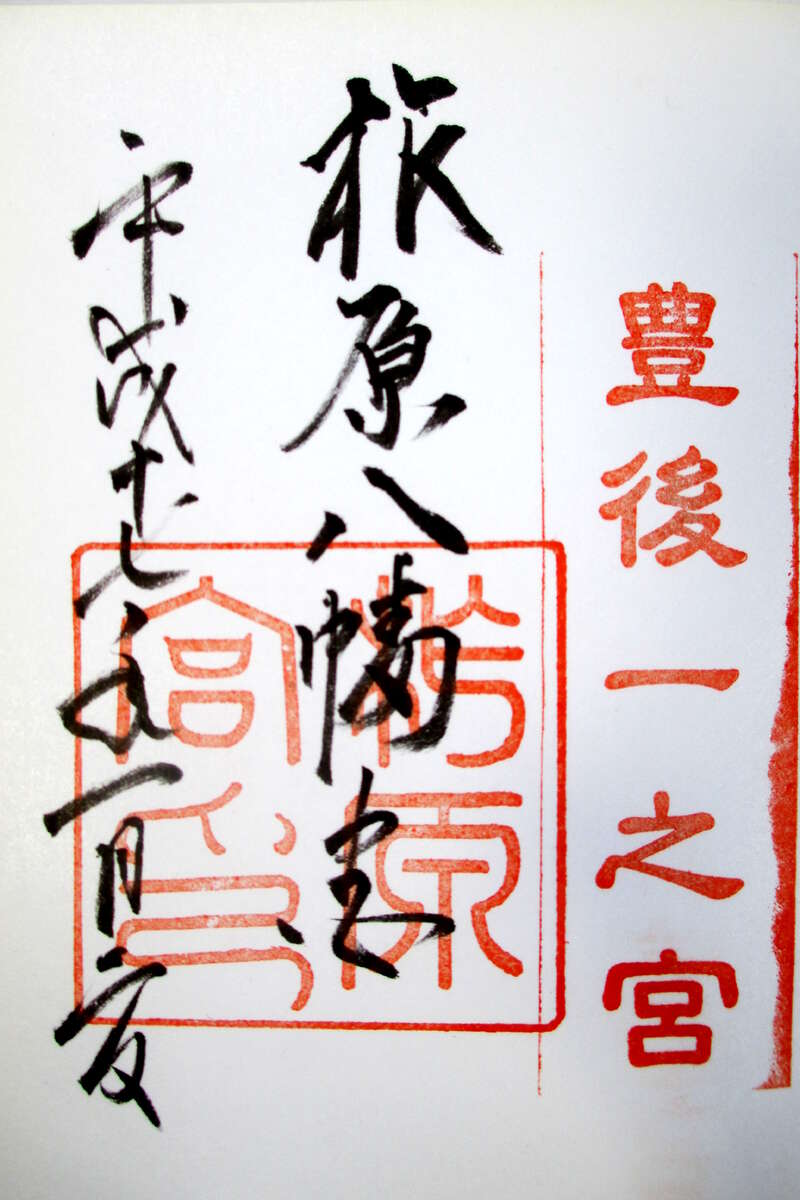 豊後一之宮
柞原八幡宮
柞原
宮印
平成十七年一月